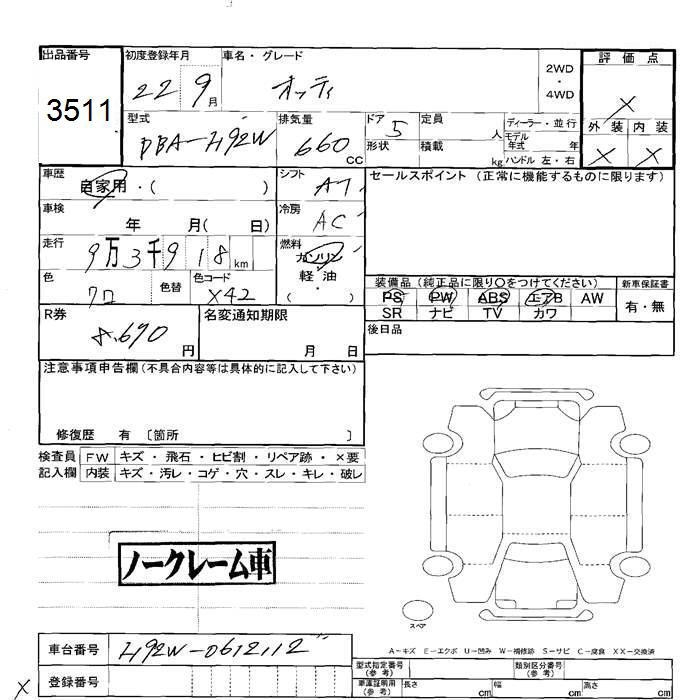 出品番号 初度登録年月 車名・グレード 2WD・4WD 評価点
3511 22 9月 オッティ X
型式 排気量 ドア 定員 ディーラー・並行 外装 内装
DBA-H92W 660 CC 5 人 モデル年式 年
形状 積載 kg ハンドル 左・右 X X
車歴 自家用・( ) シフト AT セールスポイント (正常に機能するものに限ります)
車検 年 月( 日) 冷房 AC
走行 9万3千918km 燃料 ガソリン 軽油 ( )
色 クロ 色替 色コード X42 装備品 (純正品に限り○をつけてください) 新車保証書
PS PW ABS エアB AW 有・無
SR ナビ TV カワ
R券 8,690円 名変通知期限 月 日 後日品
注意事項申告欄 (不具合内容等は具体的に記入して下さい)
修復歴 有 〔箇所 〕
検査員 FW キズ・飛石・ヒビ割・リペア跡・×要
記入欄 内装 キズ・汚レ・コゲ・穴・スレ・キレ・破レ
ノークレーム車
スペア
A〜キズ E−エクボ U−凹み W−補修跡 S−サビ C−腐食 XX−交換済
車台番号 H92W-0612112
X 登録番号
型式指定番号 (参考) 類別区分番号 (参考)
車庫証明用 (参考) 長さ cm 幅 cm 高さ cm